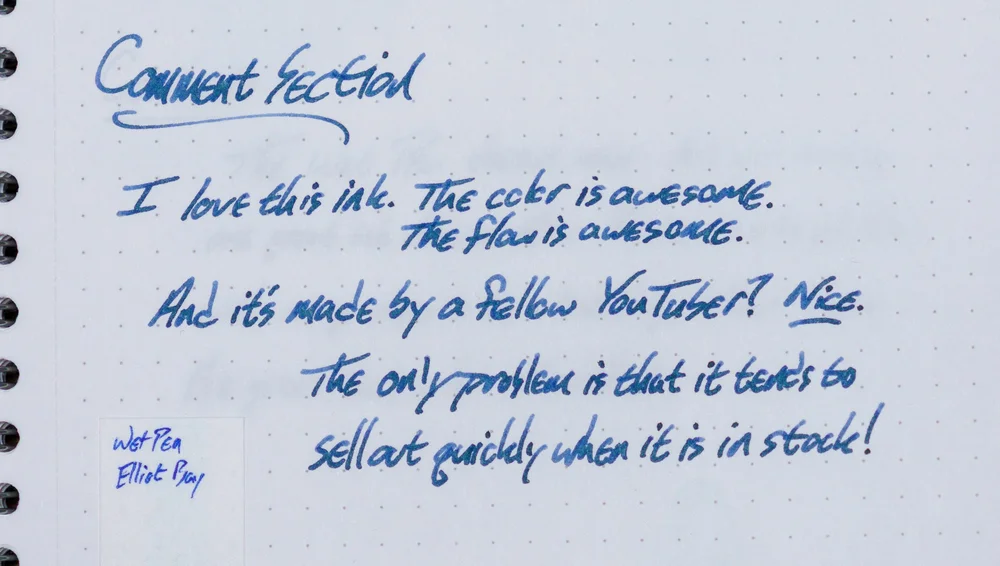 Comment Section
I love this ink. The color is awesome.
The flow is awesome.
And it's made by a fellow YouTuber? Nice.
The only problem is that it tends to
sell out quickly when it is in stock!
Wet Pen
Elliot